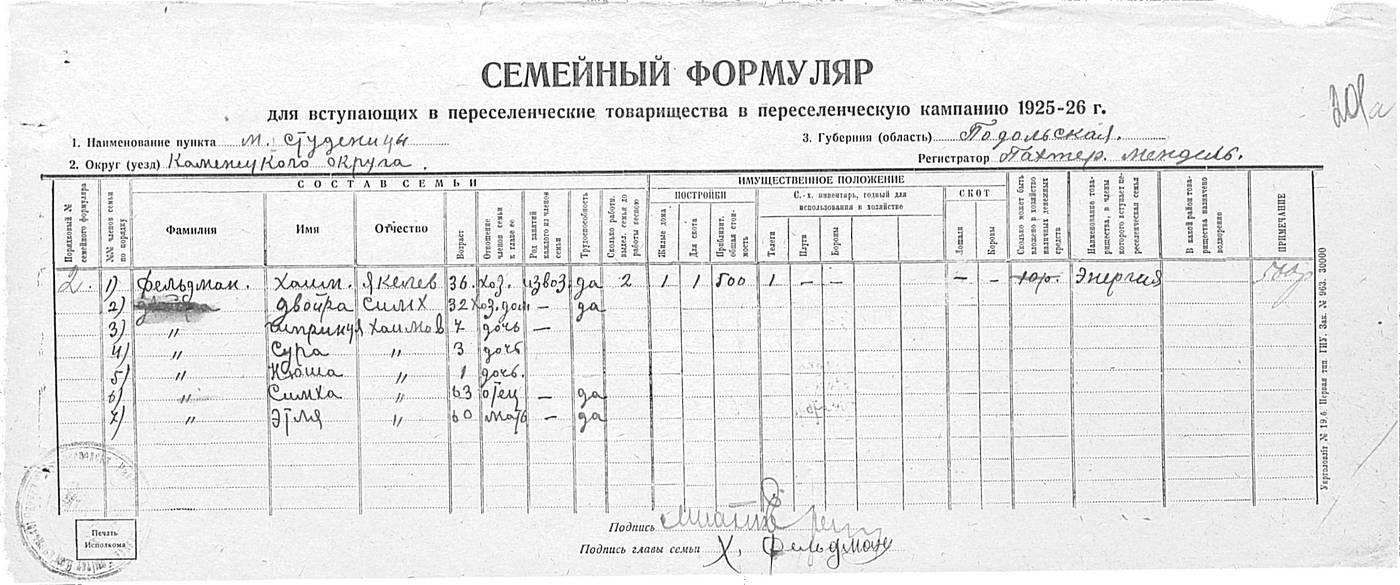 СЕМЕЙНЫЙ ФОРМУЛЯР
для вступающих в переселенческие товарищества в переселенческую кампанию 1925-26 г.
201а
1. Наименование пункта м. Студеницы
3. Губерния (область) Подольская.
2. Округ (уезд) Каменецкого округа.
Регистратор Пахтер. Мендель.
Порядковый № семейного формуляра
СОСТАВ СЕМЬИ
№№ членов семьи по порядку
Фамилия
Имя
Отчество
Возраст
Отношение членов семьи к главе ее
Род занятий каждого из членов семьи
Трудоспособность
Сколько работн. выдел. семья до работы весною
ИМУЩЕСТВЕННОЕ ПОЛОЖЕНИЕ
ПОСТРОЙКИ
Жилые дома
Для скота
Приблизит. общая стоимость
С.-х. инвентарь, годный для использования в хозяйстве
Плуги
Бороны
СКОТ
Лошади
Коровы
Сколько может быть вложено в хозяйство наличных денежных средств
Наименование товарищества, в члены которого вступает переселенческая семья
В какой район товарищества назначено водворение
ПРИМЕЧАНИЕ
2. 1) Фельдман. Хаим. Якелев 36. хоз. извоз. да 2 1 1 500 1 – – – – 10 р. Энергия
2) Двойра Симх 32 хоз. дом – да
3) " Хаимов 7 дочь –
4) " Сура " 3 дочь
5) " Нюша " 1 дочь.
6) " Симха " 63 отец – да
7) " Этля " 60 мать – да
Печать Исполкома
Подпись
Подпись главы семьи Х. Фельдман
Укрголовліт № 19.б. Первая тип. ГИУ. Зак. № 963. 30000